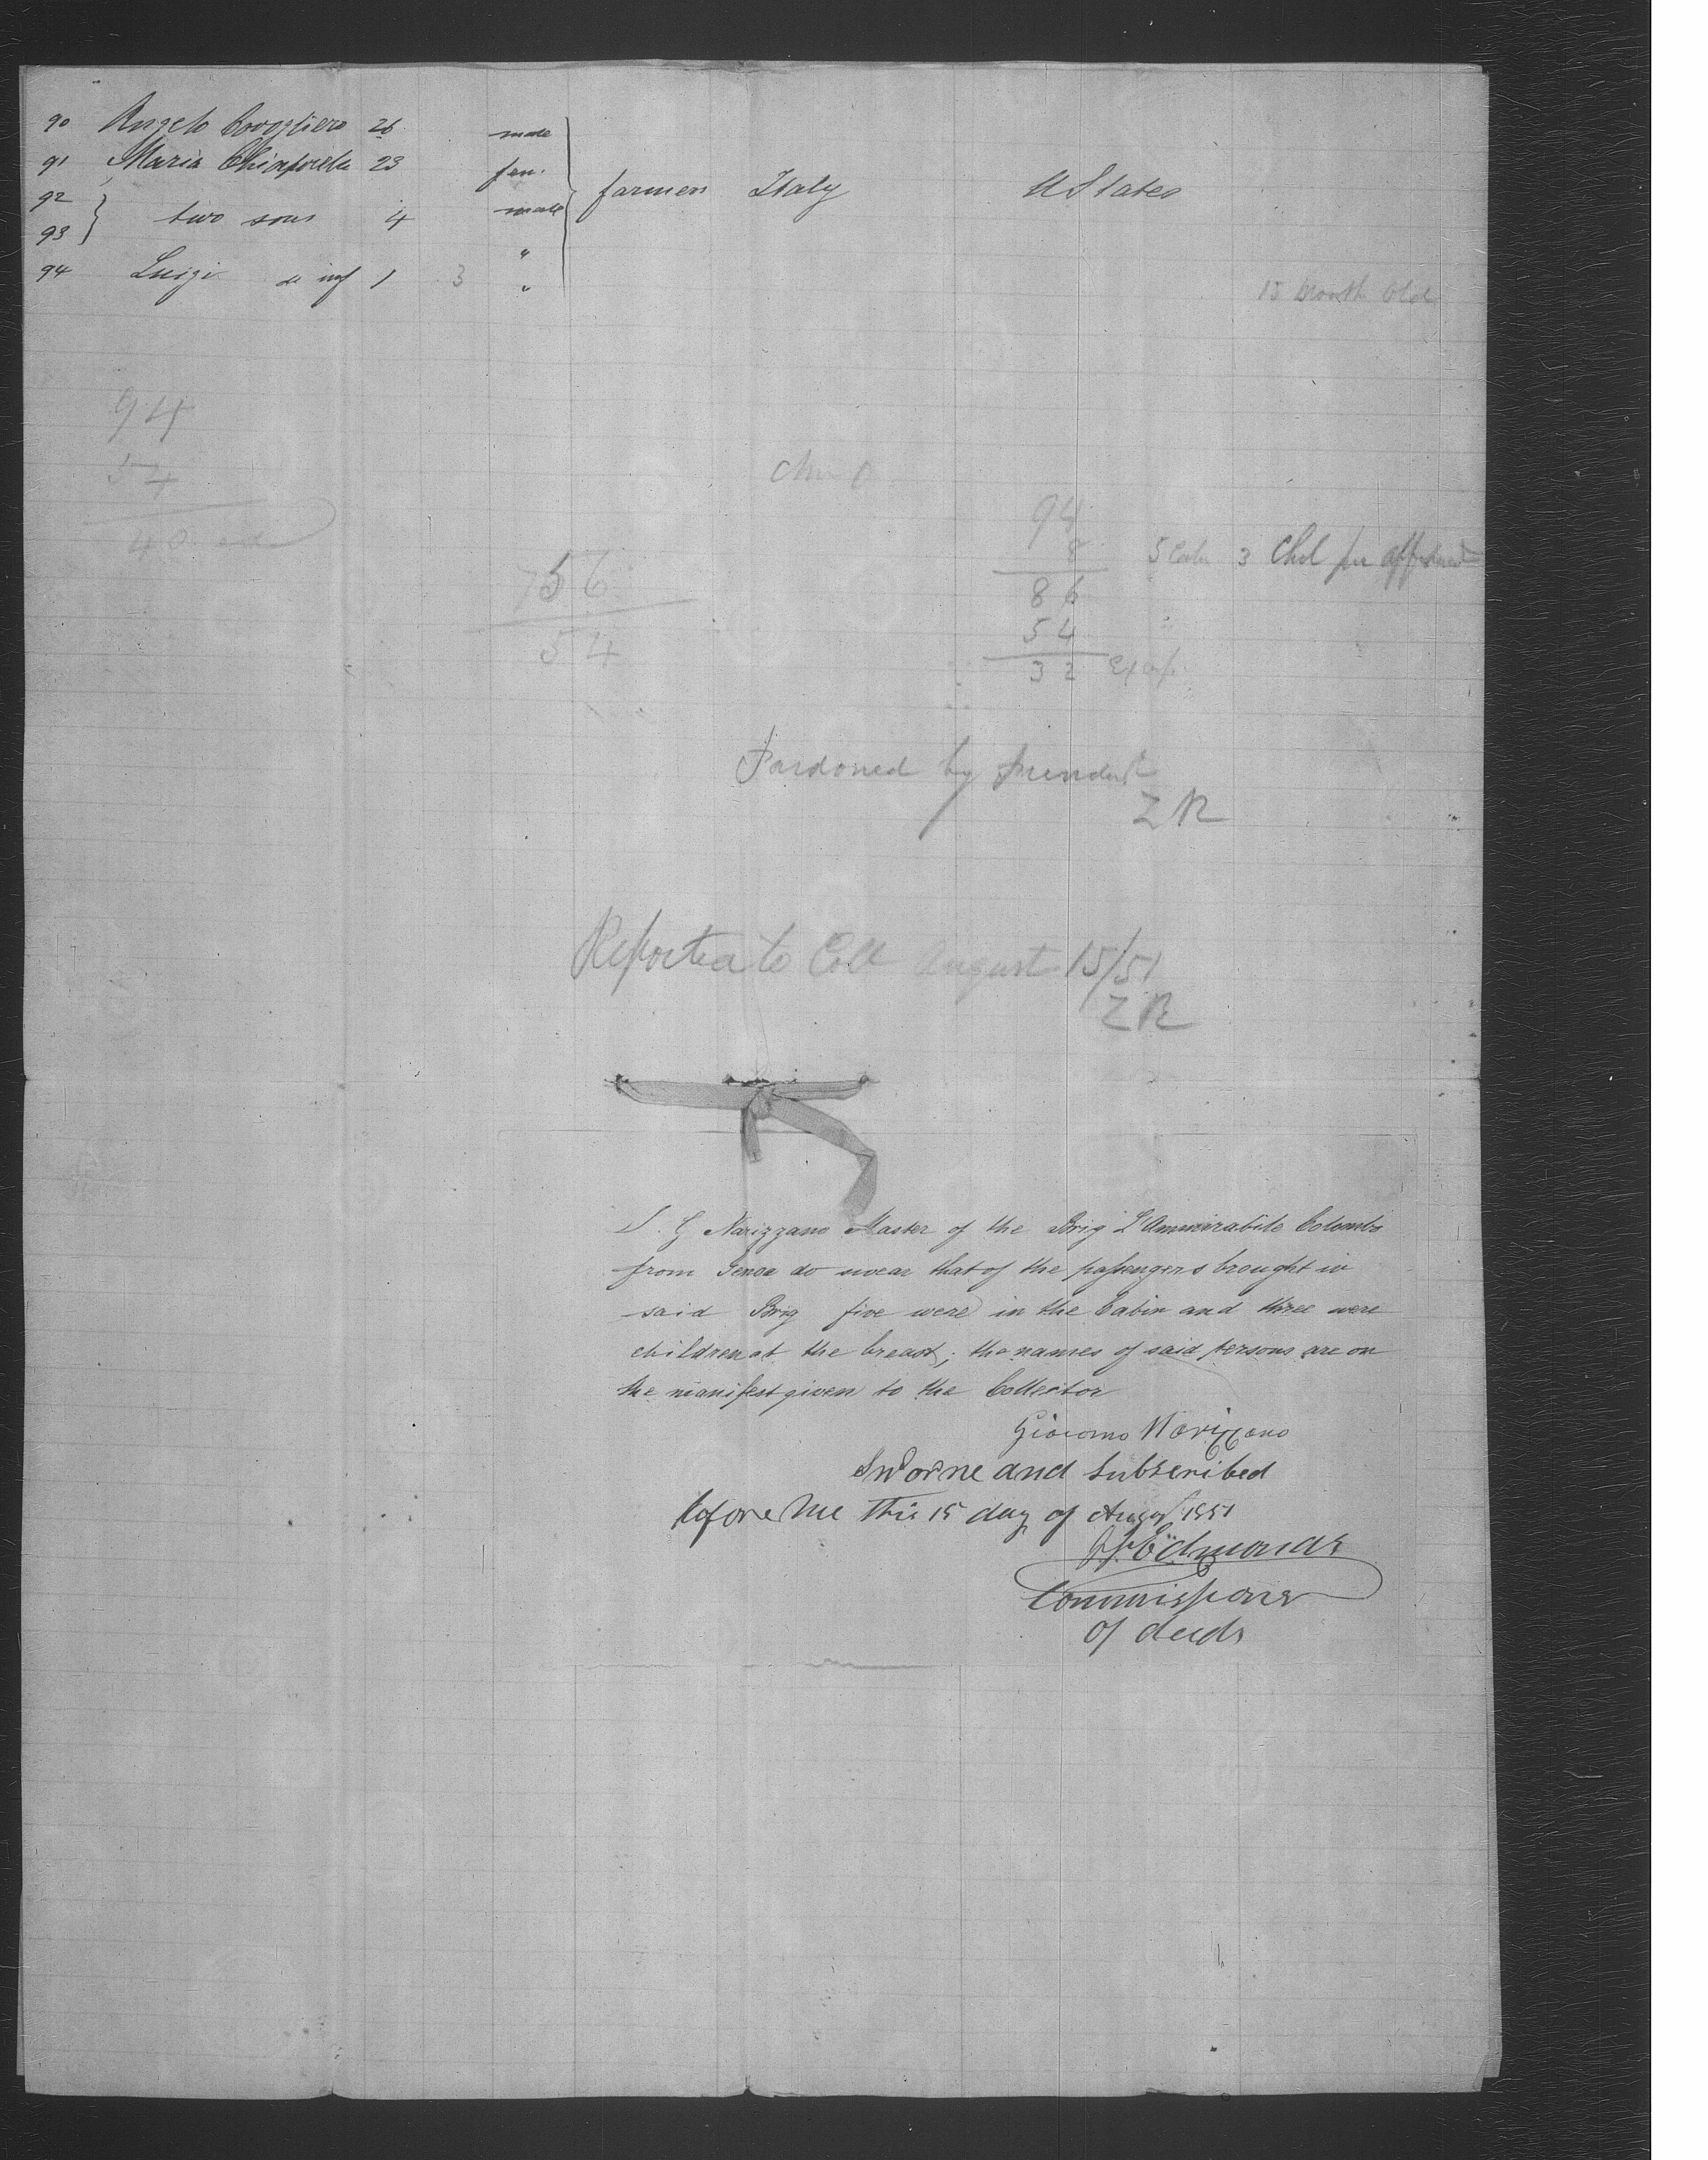 90 Angelo Covogliero 26 male
91 Maria Chiapoella 23 fem.
92
93 } two sons 4 male farmer Italy U States
"
94 Luigi inf 1 3 "
15 Month Old
94
54
40
94
8 5 Cab 3 Chil per affidavit
86
54
32
756
54
Pardoned by president
ZR
Reported to Coll August 15/51
ZR
I. G Narizzano Master of the Brig L'Ammirabile Colombo
from Genoa do swear that of the passengers brought in
said Brig five were in the Cabin and three were
children at the breast; the names of said persons are on
the manifest given to the Collector
Giacomo Narizzano
Sworne and Subscribed
before Me this 15 day of August 1851
Edmonds
Commissioner
of deeds